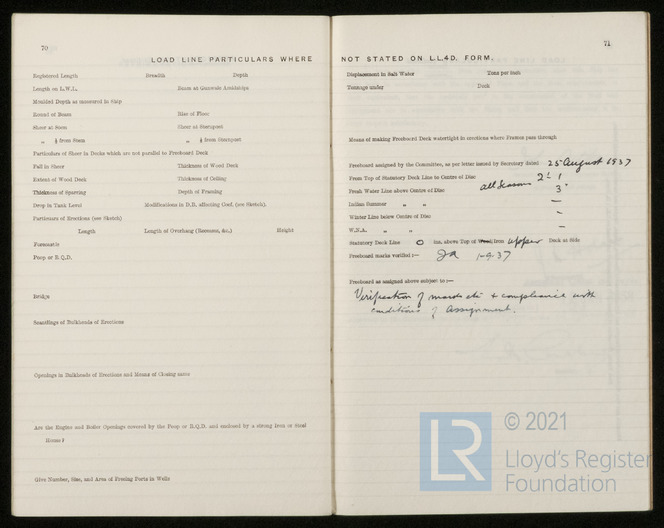 70
LOAD LINE PARTICULARS WHERE
Registered Length Breadth Depth
Length on L.W.L. Beam at Gunwale Amidships
Moulded Depth as measured in Ship
Round of Beam Rise of Floor
Sheer at Stem Sheer at Sternpost
„ ⅛ from Stem „ ⅛ from Sternpost
Particulars of Sheer in Decks which are not parallel to Freeboard Deck
Fall in Sheer Thickness of Wood Deck
Extent of Wood Deck Thickness of Ceiling
Thickness of Sparring Depth of Framing
Drop in Tank Level Modifications in D.B. affecting Coef. (see Sketch).
Particulars of Erections (see Sketch)
Length Length of Overhang (Recesses, &c.) Height
Forecastle
Poop or R.Q.D.
Bridge
Scantlings of Bulkheads of Erections
Openings in Bulkheads of Erections and Means of Closing same
Are the Engine and Boiler Openings covered by the Poop or R.Q.D. and enclosed by a strong Iron or Steel
House?
Give Number, Size, and Area of Freeing Ports in Wells
71
NOT STATED ON L.L.4D. FORM.
Displacement in Salt Water Tons per inch
Tonnage under Deck
Means of making Freeboard Deck watertight in erections where Frames pass through
Freeboard assigned by the Committee, as per letter issued by Secretary dated 25 August 1937
From Top of Statutory Deck Line to Centre of Disc All Seasons 2' 1
Fresh Water Line above Centre of Disc 3"
Indian Summer „ „ –
Winter Line below Centre of Disc –
W.N.A. „ „ –
Statutory Deck Line 0 ins. above Top of Wood, Iron upper Deck at Side
Freeboard marks verified :—
Freeboard as assigned above subject to :—
Verification of marks etc & compliance with
conditions of Assignment.
LR © 2021
Lloyd's Register
Foundation